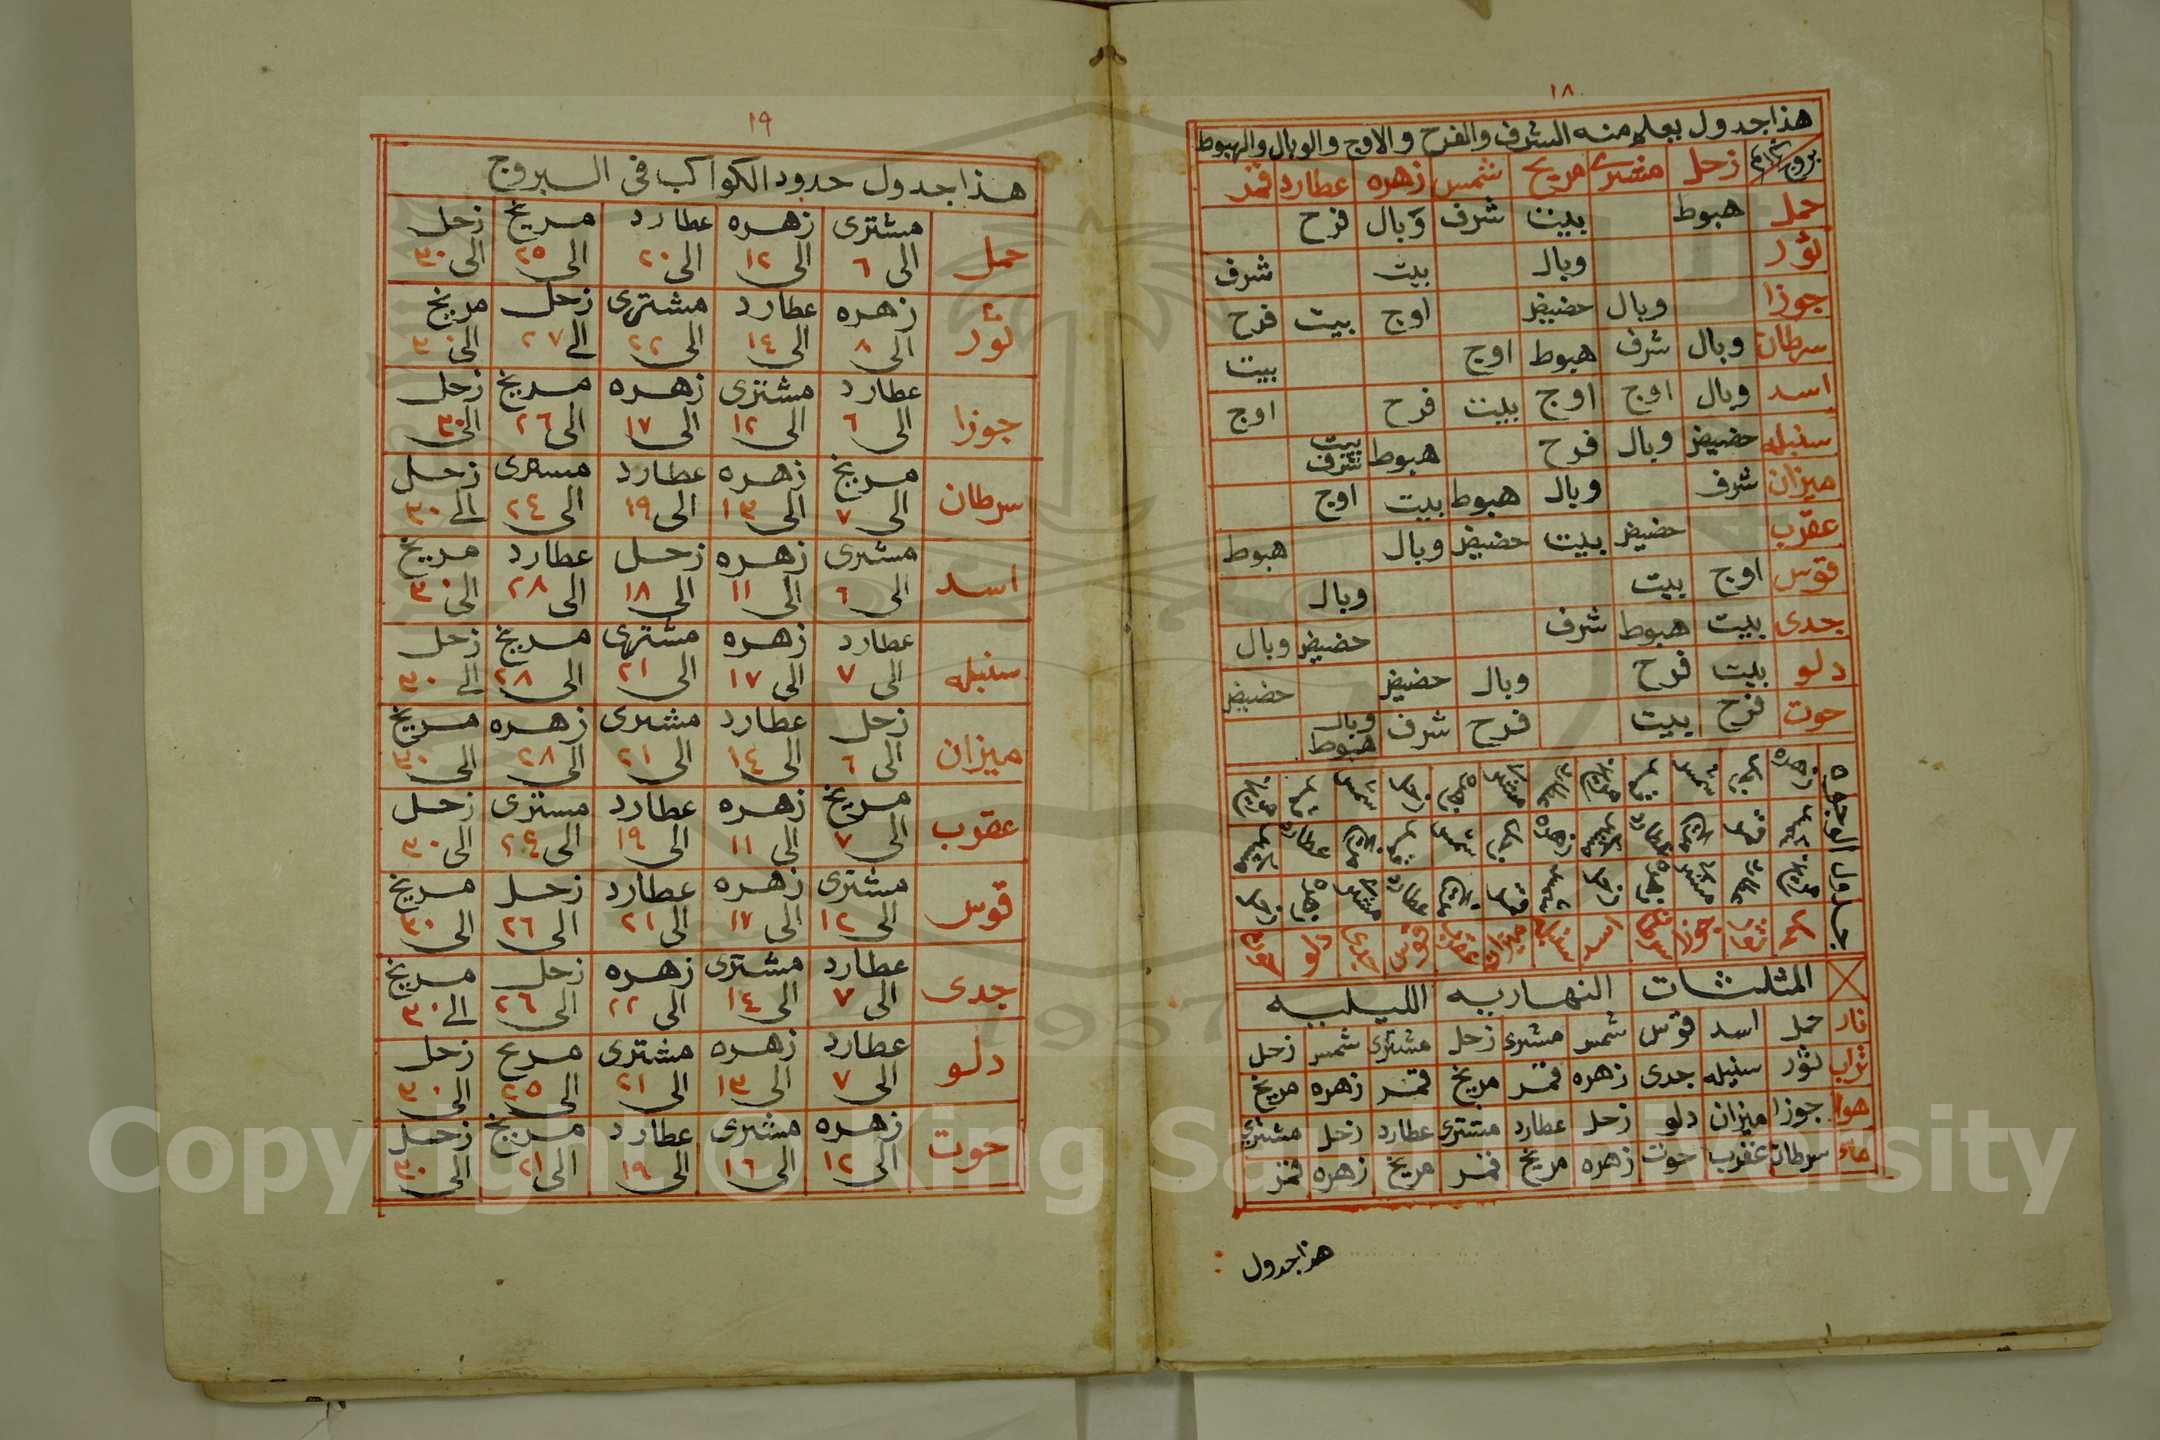 ١٨
هذا جدول يعلم منه الشرف والفرح والاوج والوبال والهبوط
زحل مشترى مريخ شمس زهره عطارد قمر
حمل هبوط بيت شرف وبال فرح
ثور وبال بيت شرف
جوزا وبال حضيض اوج بيت فرح
سرطان وبال شرف هبوط اوج بيت
اسد وبال اوج اوج بيت فرح اوج
سنبله حضيض وبال فرح هبوط بيت شرف
ميزان شرف وبال هبوط بيت اوج
عقرب حضيض بيت حضيض وبال هبوط
قوس اوج بيت وبال
جدى بيت هبوط شرف حضيض وبال
دلو بيت فرح وبال حضيض حضيض
حوت فرح بيت فرح شرف وبال هبوط
جدول الوجوه
المثلثات النهاريه الليليه
نار حمل اسد قوس شمس مشترى زحل مشترى شمس زحل
تراب ثور سنبله جدى زهره قمر مريخ قمر زهره مريخ
هوا جوزا ميزان دلو زحل عطارد مشترى عطارد زحل مشترى
ماء سرطان عقرب حوت زهره مريخ قمر مريخ زهره قمر
هذا جدول
١٩
هذا جدول حدود الكواكب فى البروج
حمل مشترى الى ٦ زهره الى ١٢ عطارد الى ٢٠ مريخ الى ٢٥ زحل الى ٣٠
ثور زهره الى ٨ عطارد الى ١٤ مشترى الى ٢٢ زحل الى ٢٧ مريخ الى ٣٠
جوزا عطارد الى ٦ مشترى الى ١٢ زهره الى ١٧ مريخ الى ٢٦ زحل الى ٣٠
سرطان مريخ الى ٧ زهره الى ١٣ عطارد الى ١٩ مشترى الى ٢٤ زحل الى ٣٠
اسد مشترى الى ٦ زهره الى ١١ زحل الى ١٨ عطارد الى ٢٨ مريخ الى ٣٠
سنبله عطارد الى ٧ زهره الى ١٧ مشترى الى ٢١ مريخ الى ٢٨ زحل الى ٣٠
ميزان زحل الى ٦ عطارد الى ١٤ مشترى الى ٢١ زهره الى ٢٨ مريخ الى ٣٠
عقرب مريخ الى ٧ زهره الى ١١ عطارد الى ١٩ مشترى الى ٢٤ زحل الى ٣٠
قوس مشترى الى ١٢ زهره الى ١٧ عطارد الى ٢١ زحل الى ٢٦ مريخ الى ٣٠
جدى عطارد الى ٧ مشترى الى ١٤ زهره الى ٢٢ زحل الى ٢٦ مريخ الى ٣٠
دلو عطارد الى ٧ زهره الى ١٣ مشترى الى ٢١ مريخ الى ٢٥ زحل الى ٣٠
حوت زهره الى ١٢ مشترى الى ١٦ عطارد الى ١٩ مريخ الى ٢١ زحل الى ٣٠
1957
Copyright © King Saud University